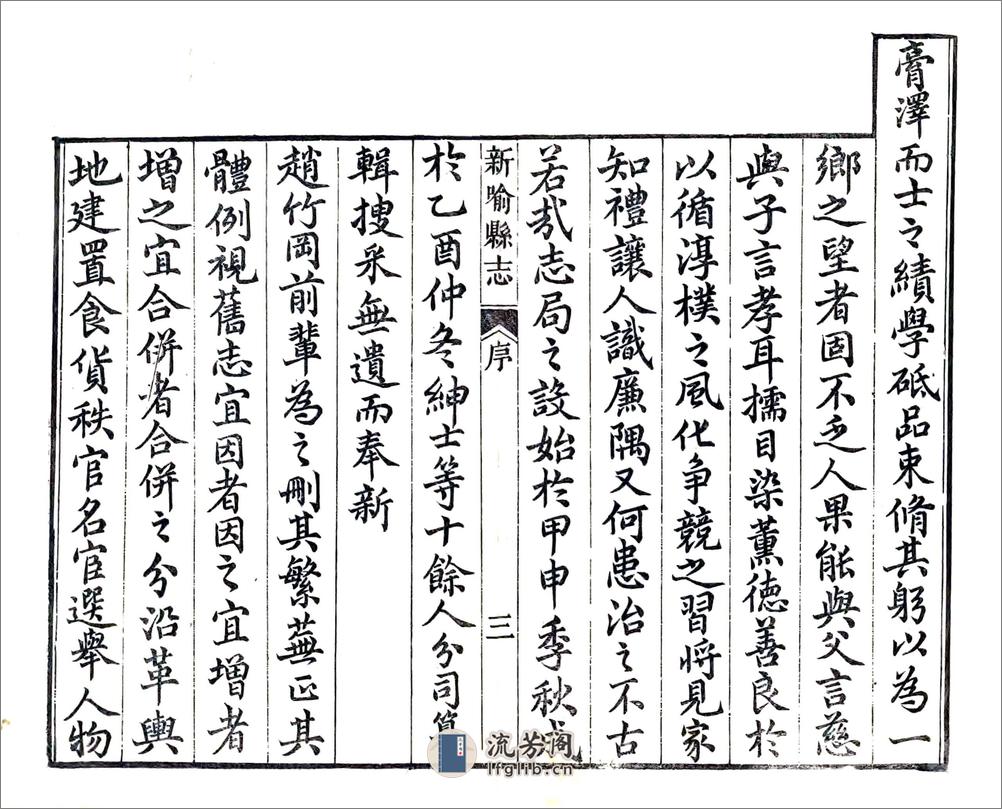 膏澤而士之績學砥品束脩其躬以為一
鄉之望者固不乏人果能與父言慈
與子言孝耳擩目染薰德善良於
以循淳樸之風化爭競之習將見家
知禮讓人識廉隅又何患治之不古
若哉志局之設始於甲申季秋成
新喻縣志 序 三
於乙酉仲冬紳士等十餘人分司纂
輯搜采無遺而奉新
趙竹岡前輩為之刪其繁蕪正其
體例視舊志宜因者因之宜增者
增之宜合併者合併之分沿革輿
地建置食貨秩官名宦選舉人物
流芳阁
lfglib.cn